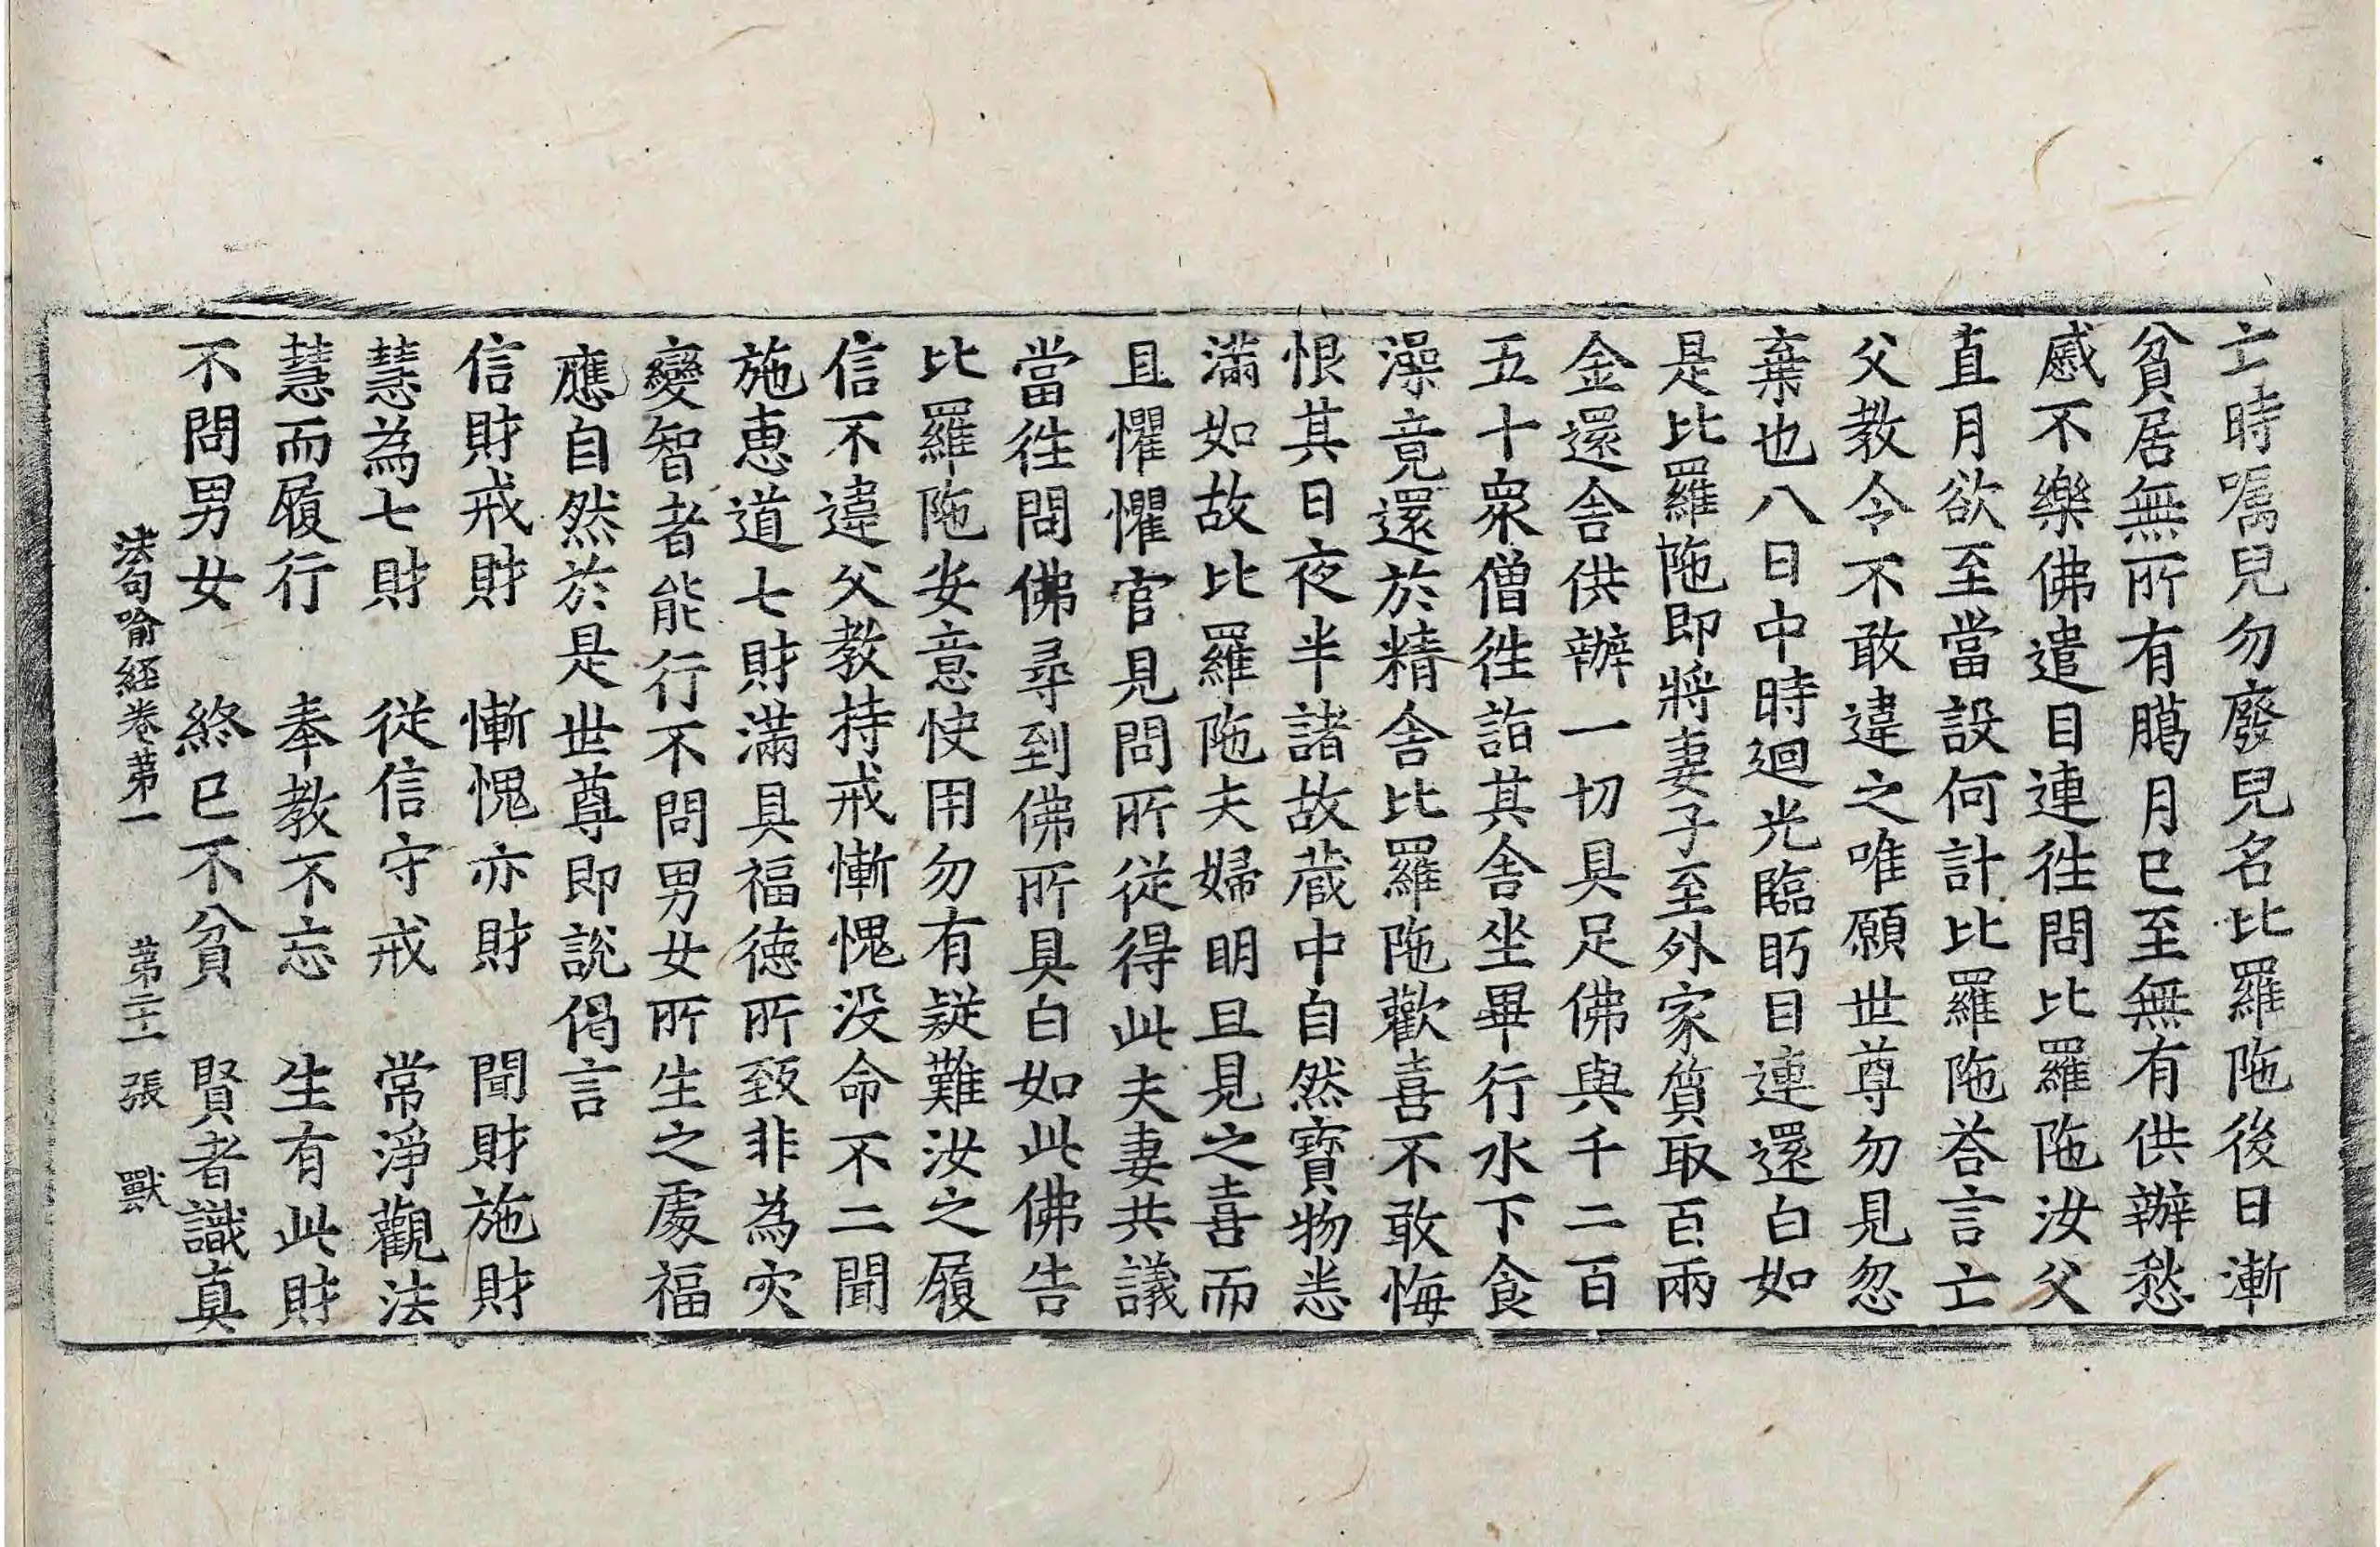 亡時嘱兒勿廢兒名比羅陁後日漸
貧居無所有臈月已至無有供辦愁
慼不樂佛遣目連徃問比羅陁汝父
直月欲至當設何計比羅陁荅言亡
父教令不敢違之唯願世尊勿見忽
棄也八日中時迴光臨眄目連還白如
是比羅陁即將妻子至外家質取百兩
金還舎供辦一切具足佛與千二百
五十衆僧徃詣其舎坐畢行水下食
澡竟還於精舎比羅陁歡喜不敢悔
恨其日夜半諸故蔵中自然寶物悉
滿如故比羅陁夫婦明旦見之喜而
且懼懼官見問所從得此夫妻共議
當徃問佛尋到佛所具白如此佛告
比羅陁安意快用勿有疑難汝之履
信不違父教持戒慚愧没命不二聞
施惠道七財滿具福德所致非為灾
變智者能行不問男女所生之處福
應自然於是世尊即說偈言
信財戒財　慚愧亦財　聞財施財
慧為七財　從信守戒　常淨觀法
慧而履行　奉教不忘　生有此財
不問男女　終已不貧　賢者識真
法句喻經卷第一　第二十一張　獸